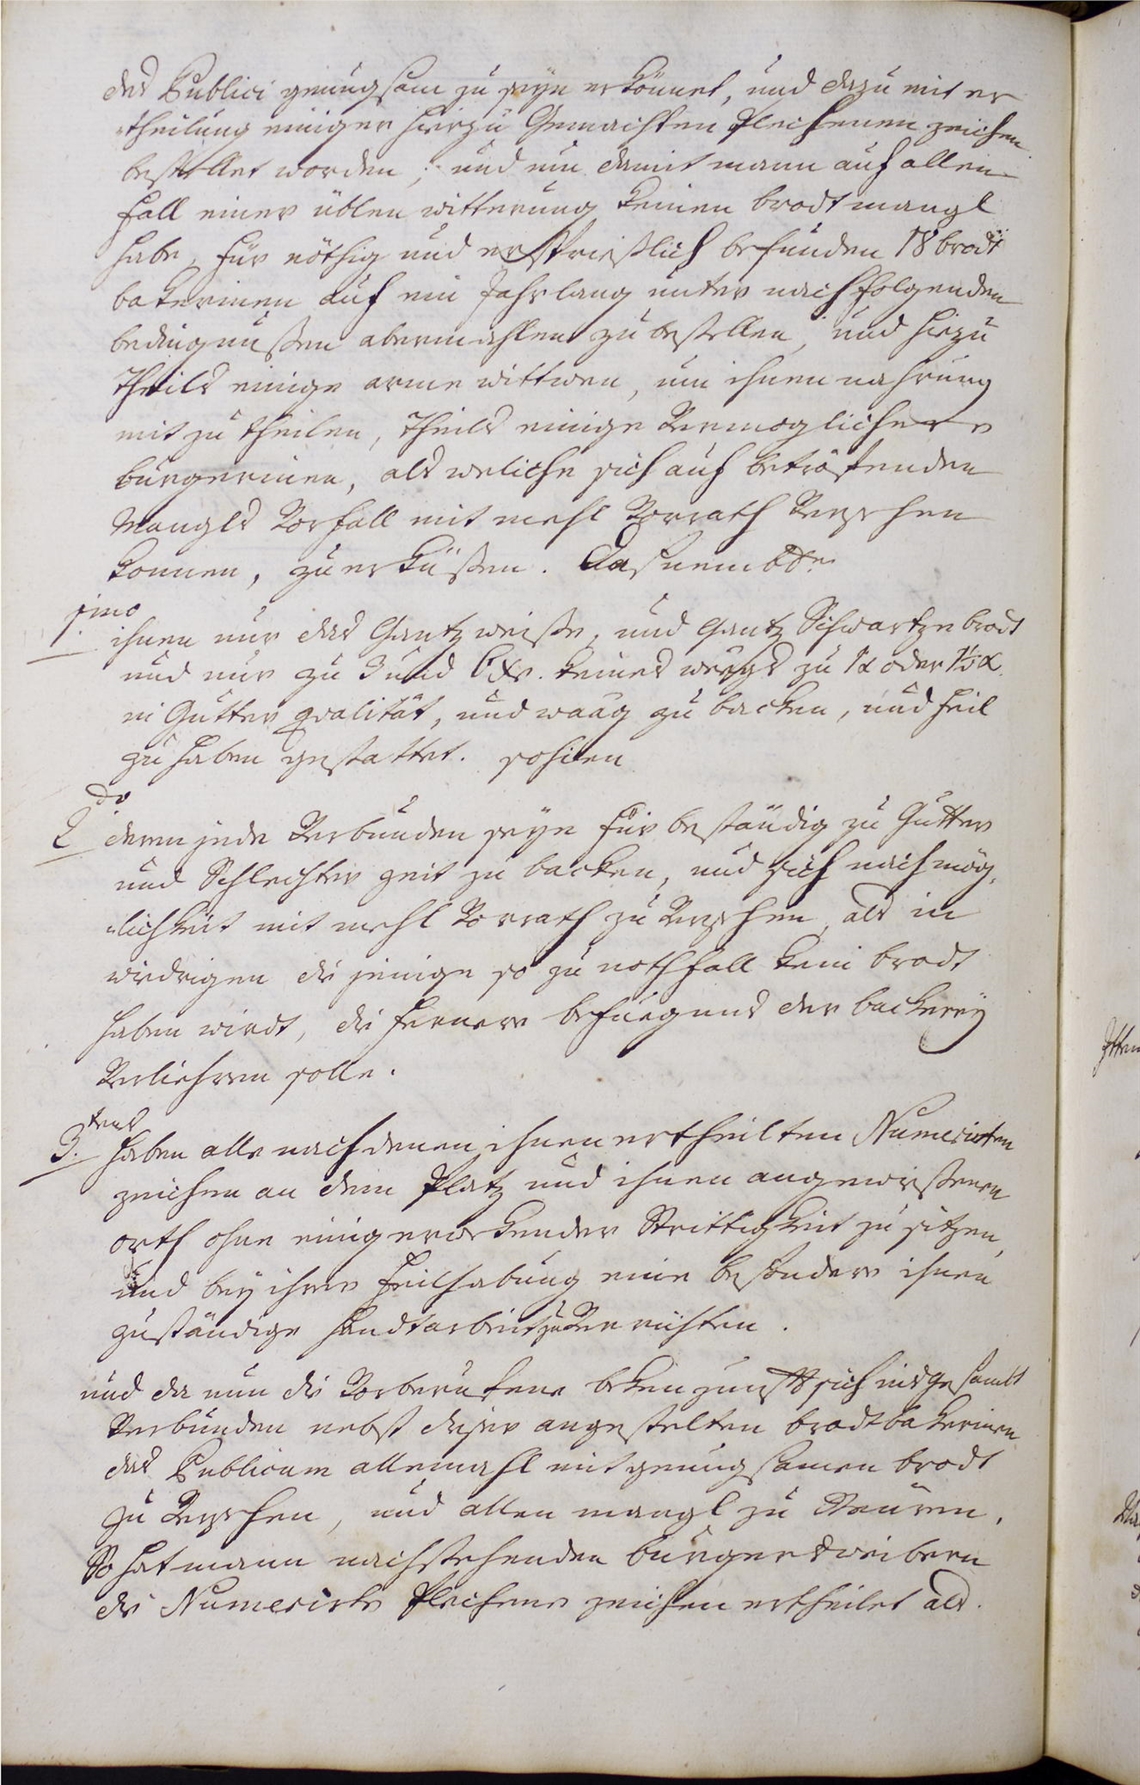 des Publici genugsam zu seyn erkönnet, und dazu mit er
theilung einiger hierzu Gemachten Plechenen zeichen
bestellet worden; und nun damit mann auf allen
fall einer üblen witterung keinen brodt mangl
habe, für nöthig und ersprießlich befunden 18 brodt
bakerinen auf ein Jahrlang unter nachfolgenden
bedingnußen abermahlen zu bestellen, und hiezu
theils einige arme wittwen, um ihnen nahrung
mit zu theilen, theils einige Vermoglichere
burgerinen, als weliche sich auf betröffenden
Mangls Vorfall mit mehl Vorrath Versehen
konnen, zu erküßen. Dasnembl:
1mo
ihnen nur das Gantz weiße, und Gantz Schwartze brodt
und nur zu 3 und 6 xr. keines weegs zu 1 x oder 1½ x
in Gutter qvalität, und waag zu backen, und feil
zu haben gestattet. sohien
2do
deren jede Verbunden seye für beständig zu Gutter
und Schlechter zeit zu backen, und sich nach mög,
lichkeit mit mehl Vorrath zu Versehen, als in
widrigen die jenige so zu nothfall kein brodt
haben wirdt, die fernere befuegnus der backerey
Verliehren solle.
3tens
haben alle nach denen ihnen ertheilten Numerirten
zeichen an dem Platz und ihnen angewißenen
orth ohne einig erwekender Strittigkeit zu sitzen,
und bey ihrer feilhabung eine besondere ihnen
zuständige handtarbeit zu Verrichten.
und da nun die Vorberufene beken zunfft sich insgesambt
Verbunden nebst dieser angestelten brodtbakerinen
das Publicum allemahl mit genugsamen brodt
zu Versehen, und allen mangl zu Steuren.
So hat mann nachstehenden burgersweibern
die Numerirte Plechene zeichen ertheilet als.